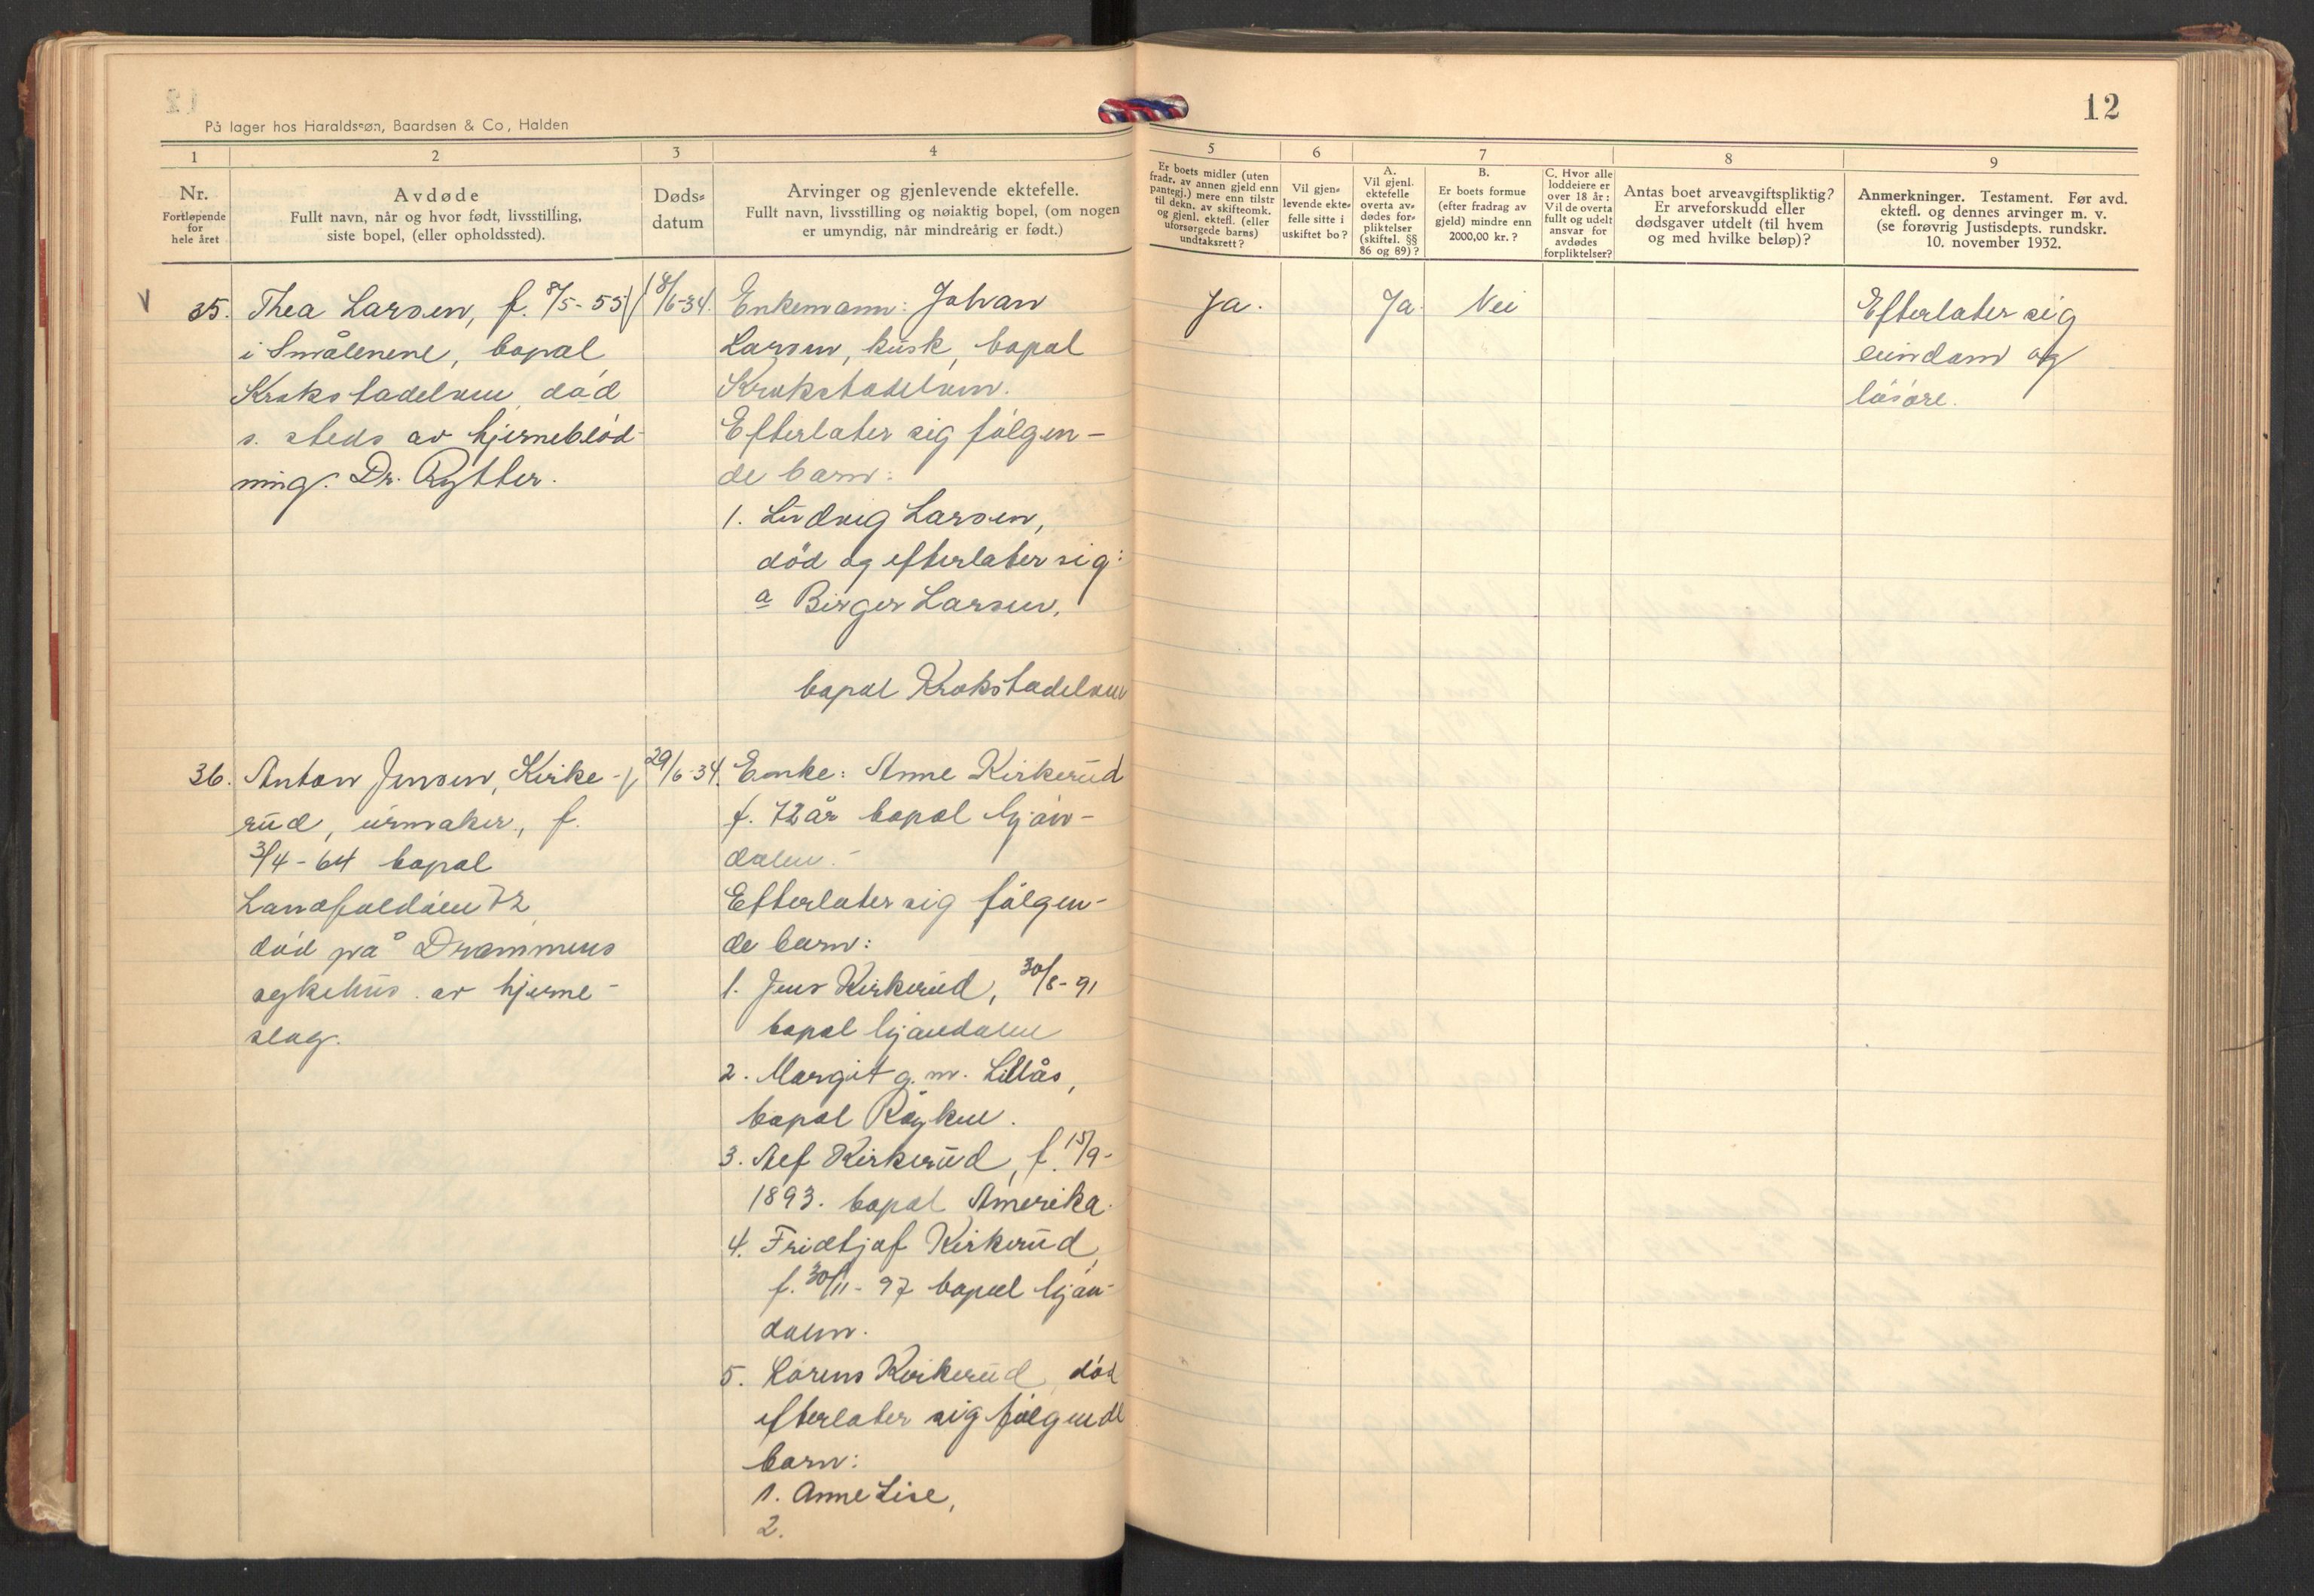 12
På lager hos Haraldssøn, Baardsen & Co, Halden
1
2
3
4
5
6
7
8
9
Nr.
Fortløpende
for
hele året
Avdøde
Fullt navn, når og hvor født, livsstilling,
siste bopel, (eller opholdssted).
Døds-
datum
Arvinger og gjenlevende ektefelle.
Fullt navn, livsstilling og nøiaktig bopel, (om nogen
er umyndig, når mindreårig er født.)
Er boets midler (uten
fradr. av annen gjeld enn
pantegj.) mere enn tilstr
til dekn. av skifteomk.
og gjenl. ektefl. (eller
uforsørgede barns)
undtaksrett?
Vil gjen-
levende ekte-
felle sitte i
uskiftet bo?
A.
Vil gjenl.
ektefelle
overta av-
dødes for-
pliktelser
(skiftel. §§
86 og 89)?
B.
Er boets formue
(efter fradrag av
gjeld) mindre enn
2000,00 kr.?
C. Hvor alle
loddeiere er
over 18 år:
Vil de overta
fullt og udelt
ansvar for
avdødes
forpliktelser?
Antas boet arveavgiftspliktig?
Er arveforskudd eller
dødsgaver utdelt (til hvem
og med hvilke beløp)?
Anmerkninger. Testament. Før avd.
ektefl. og dennes arvinger m. v.
(se forøvrig Justisdepts. rundskr.
10. november 1932.
35.
Thea Larsen, f. 8/5-55
i Smålenene, bopal
Krokstadelven død
s. steds av hjerneblød-
ning. Dr. Rytter.
8/6-34.
Enkemann: Johan
Larsen, kusk, bopal
Krokstadelven.
Efterlater sig følgen-
de barn:
1. Ludvig Larsen,
død og efterlater sig:
a Birger Larsen,
bopal Krokstadelven
Ja.
Ja.
Nei
Efterlater sig
eiendom og
løsøre.
36.
Anton Jensen, Kirke-
rud, urmaker, f.
3/4-64 bopal
Landfaldøien 72
død på Drammens
sykehus av hjerne-
slag.
29/6-34.
Enke: Anne Kirkerud
f. 72 år bopal Mjøn-
dalen.-
Efterlater sig følgen-
de barn:
1. Jens Kirkerud, 30/8-91
bopal Mjøndalen
2. Margit g. m. Lillås,
bopal Røyken.
3. Alf Kirkerud, f. 15/9-
1893. bopal Amerika.
4. Fridtjof Kirkerud,
f. 30/11-97 bopal Mjøn-
dalen.
5. Lorens Kirkerud død
efterlater sig følgende
barn:
1. Anne Lise,
2.